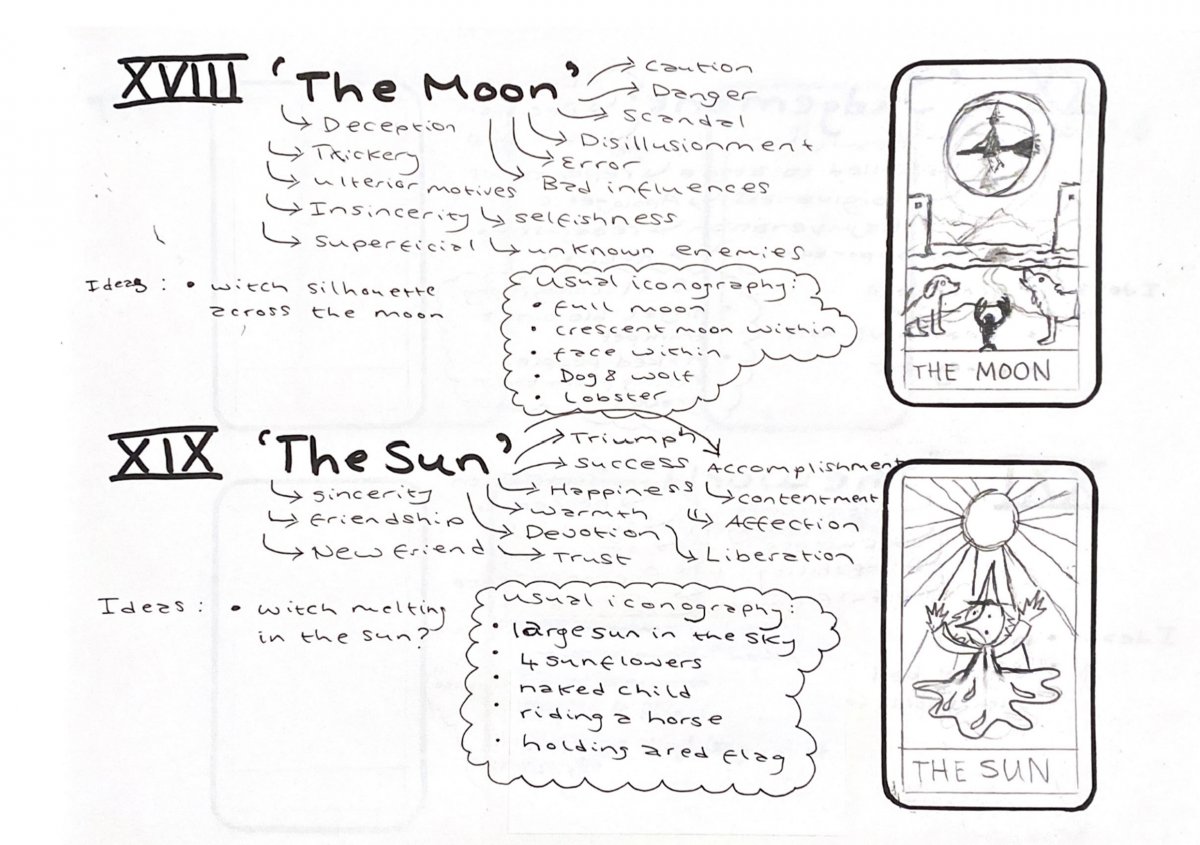 XVIII 'The Moon'
Caution
Danger
Scandal
Disillusionment
Error
Bad influences
Deception
Trickery
ulterior motives
Insincerity
selfishness
Superficial
unknown enemies
Ideas : • witch silhouette
across the moon
usual iconography:
• full moon
• crescent moon within
• face within
• Dog & wolf
• Lobster
THE MOON
XIX 'The Sun'
Triumph
Success
Accomplishment
Happiness
contentment
Warmth
Affection
Devotion
Liberation
Trust
sincerity
friendship
New friend
Ideas : • witch melting
in the sun?
usual iconography:
• large sun in the sky
• 4 sunflowers
• naked child
• riding a horse
• holding a red flag
THE SUN